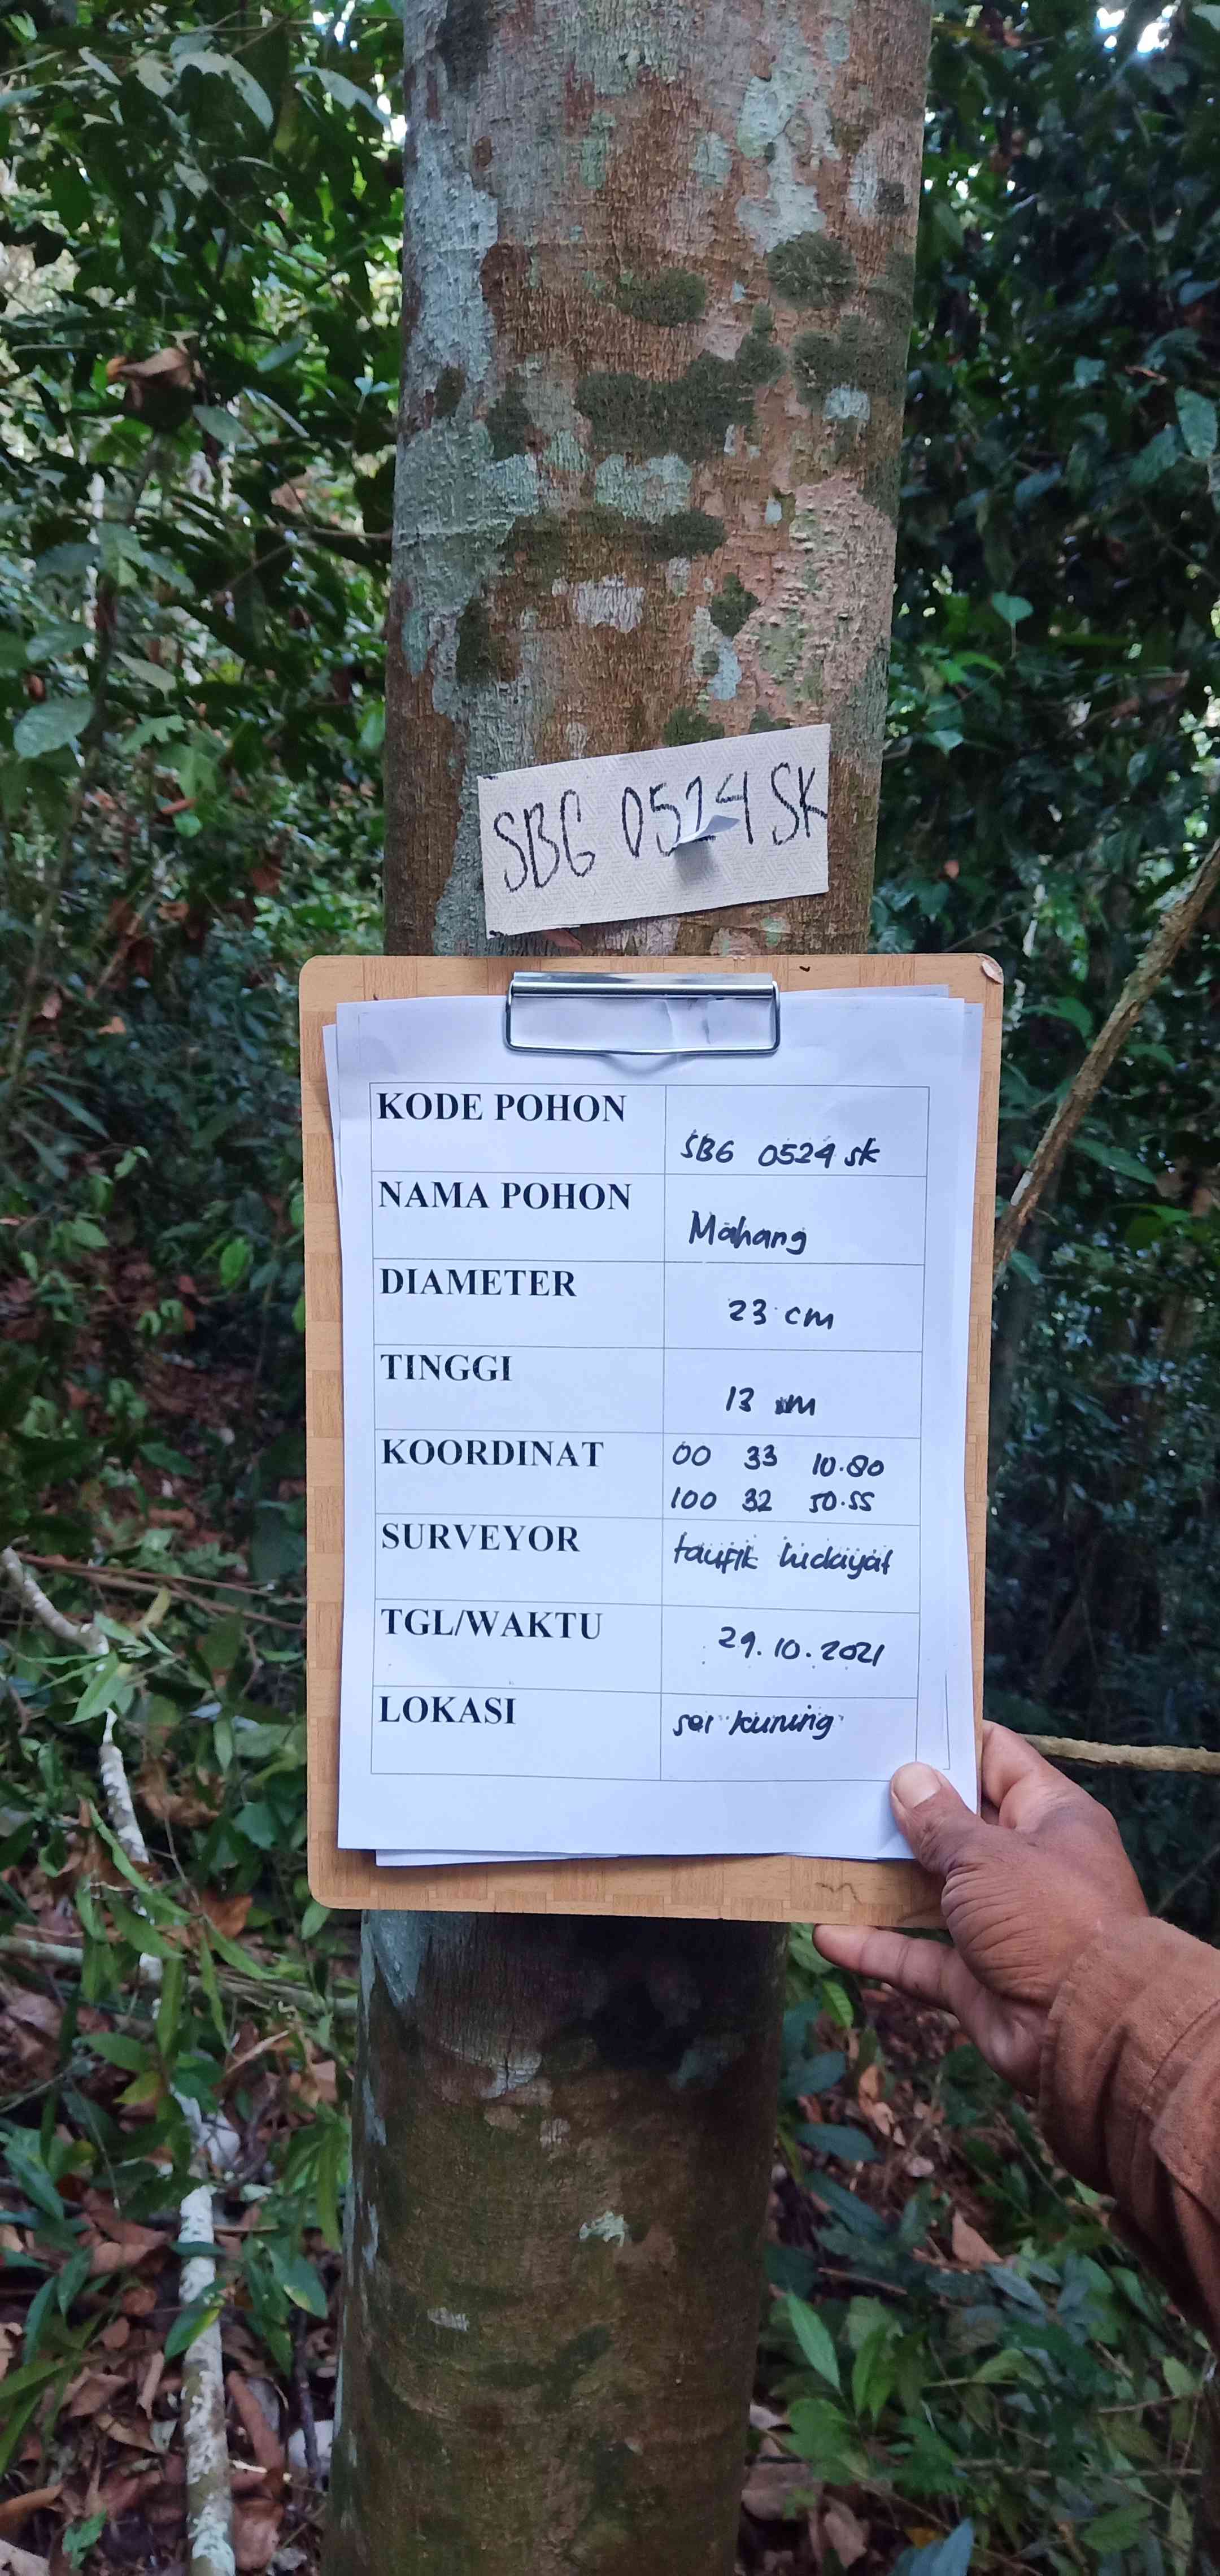 SBG 0524 SK
KODE POHON
SBG 0524 SK
NAMA POHON
Mahang
DIAMETER
23 cm
TINGGI
13 m
KOORDINAT
00 33 10.80
100 32 50.55
SURVEYOR
taufik hidayat
TGL/WAKTU
29.10.2021
LOKASI
sei kuning